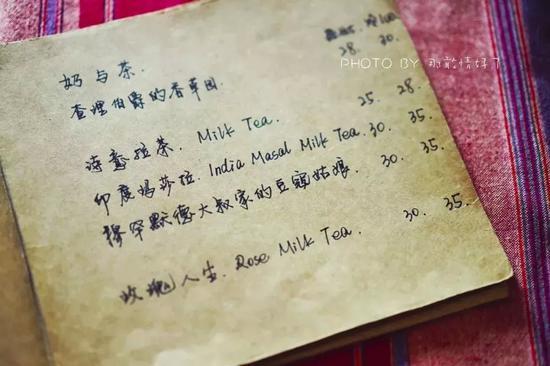 奶与茶.
PHOTO BY
查理伯爵的香草园. 28. 30.
诗意拉茶. Milk Tea. 25. 28.
印度玛莎拉. India Masal Milk Tea. 30. 35.
穆罕默德大叔家的豆蔻姑娘. 30. 35.
玫瑰人生. Rose Milk Tea. 30. 35.